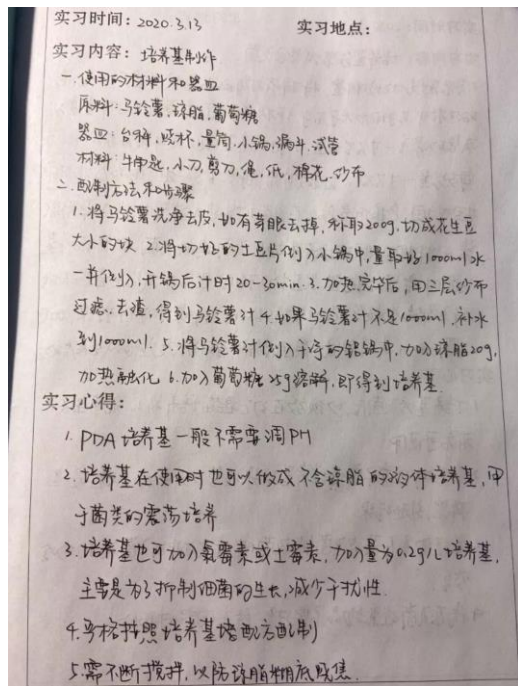 实习时间：2020.3.13 实习地点：
实习内容：培养基制作
一.使用的材料和器皿
原料:马铃薯,琼脂,葡萄糖
器皿:台秤,烧杯,量筒.小锅.漏斗.试管
材料:牛角匙,小刀,剪刀,绳,纸,棉花.纱布
二.配制方法和步骤
1.将马铃薯洗净去皮,如有芽眼去掉,称取200g.切成花生豆
大小的块 2.将切好的土豆片倒入小锅中,量取好1000ml水
一并倒入,开锅后计时20-30min.3.加热完毕后,用三层纱布
过滤.去渣,得到马铃薯汁4.如果马铃薯汁不足1000ml.补水
到1000ml. 5.将马铃薯汁倒入干净的铝锅中,加入琼脂20g,
加热融化 6.加入葡萄糖25g溶解,即得到培养基.
实习心得：
1.PDA培养基一般不需要调PH
2.培养基在使用时也可以做成不含琼脂的液体培养基,用
于菌类的震荡培养
3.培养基也可加入氯霉素或土霉素,加入量为0.2g/L培养基,
主要是为了抑制细菌的生长,减少干扰性.
4.严格按照培养基配方配制
5.需不断搅拌,以防琼脂糊底烧焦.